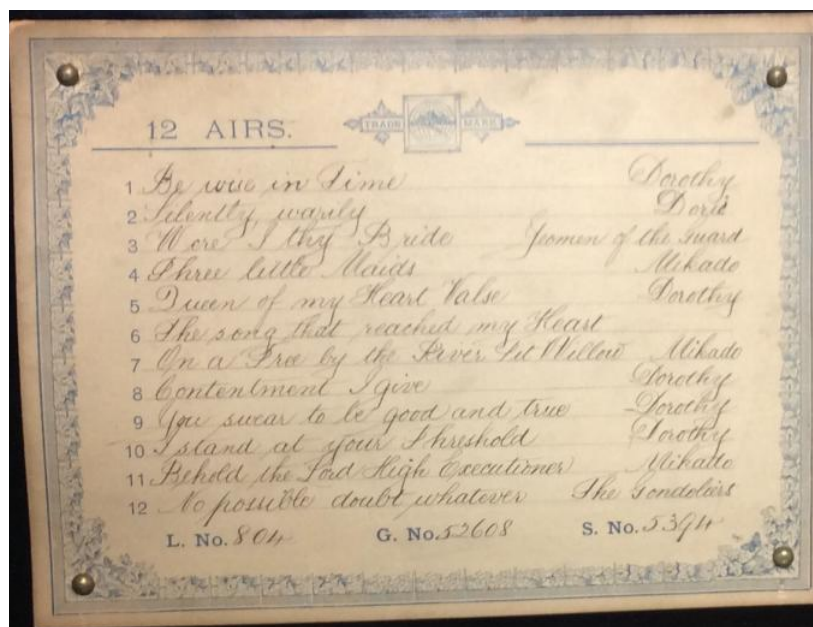 12 AIRS.
TRADE MARK
1 Be wise in Time Dorothy
2 Silently, warily Doris
3 Were I thy Bride Yeomen of the Guard
4 Three little Maids Mikado
5 Queen of my Heart Valse Dorothy
6 The song that reached my Heart
7 On a Tree by the River Tit Willow Mikado
8 Contentment I give Dorothy
9 You swear to be good and true Dorothy
10 I stand at your Threshold Dorothy
11 Behold the Lord High Executioner Mikado
12 No possible doubt whatever The Gondoliers
L. No. 804 G. No. 52608 S. No. 5394